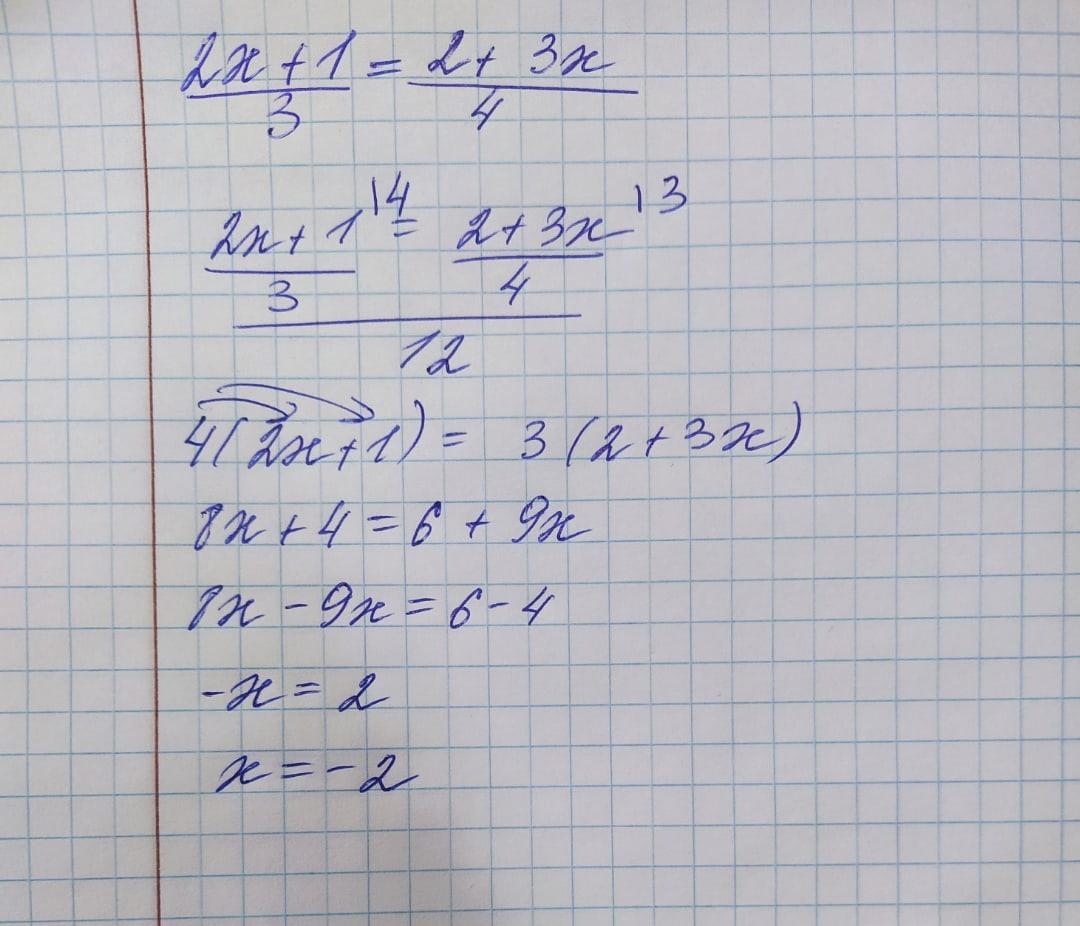 2x + 1 = 2 + 3x
3 4
2x + 1 |4 = 2 + 3x |3
3 4
12
4(2x+1) = 3(2+3x)
8x + 4 = 6 + 9x
8x - 9x = 6 - 4
-x = 2
x = -2